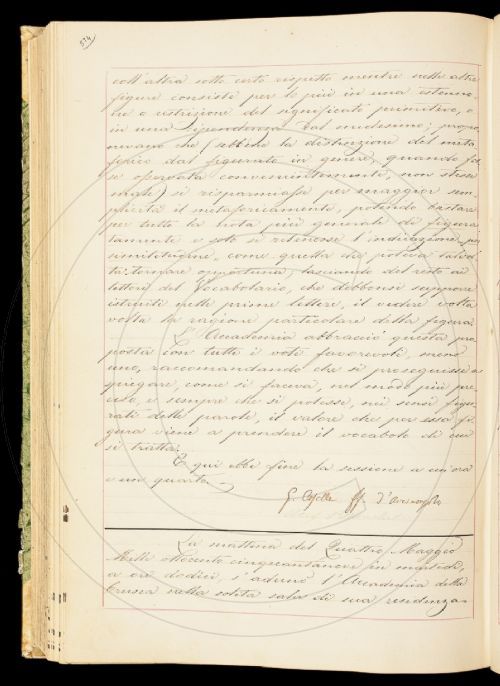 534
coll'altra sotto certo rispetto mentre nelle altre
figure consiste per lo più in una estensio-
ne o restrizione del significato primitivo, o
in una dipendenza dal medesimo; propo-
nevano che (sebbene la distinzione del meta-
forico dal figurato in genere, quando fos-
se operata convenientemente, non stesse
male) si risparmiasse per maggior sem-
plicità il metaforicamente, potendo bastare
per tutto la nota più generale di figura-
tamente e solo si ritenesse l'indicazione per
similitudine, come quella che poteva talvol-
ta tornare opportuna; lasciando del resto ai
lettori del Vocabolario, che debbonsi supporre
istruiti nelle prime lettere, il vedere volta
volta la ragione particolare della figura.
L'Accademia abbracciò questa pro-
posta con tutti i voti favorevoli, meno
uno, raccomandando che si proseguisse a
spiegare, come si faceva, nel modo più pre-
ciso, e sempre che si potesse, nei sensi figu-
rati delle parole, il valore che per essa fi-
gura viene a prendere il vocabolo di cui
si tratta.
E qui ebbe fine la sessione a un'ora
e un quarto.
La mattina del Quattro Maggio
Mille ottocento cinquantanove in martedì,
a ore dodici, s'adunò l'Accademia della
Crusca nella solita sala di sua residenza